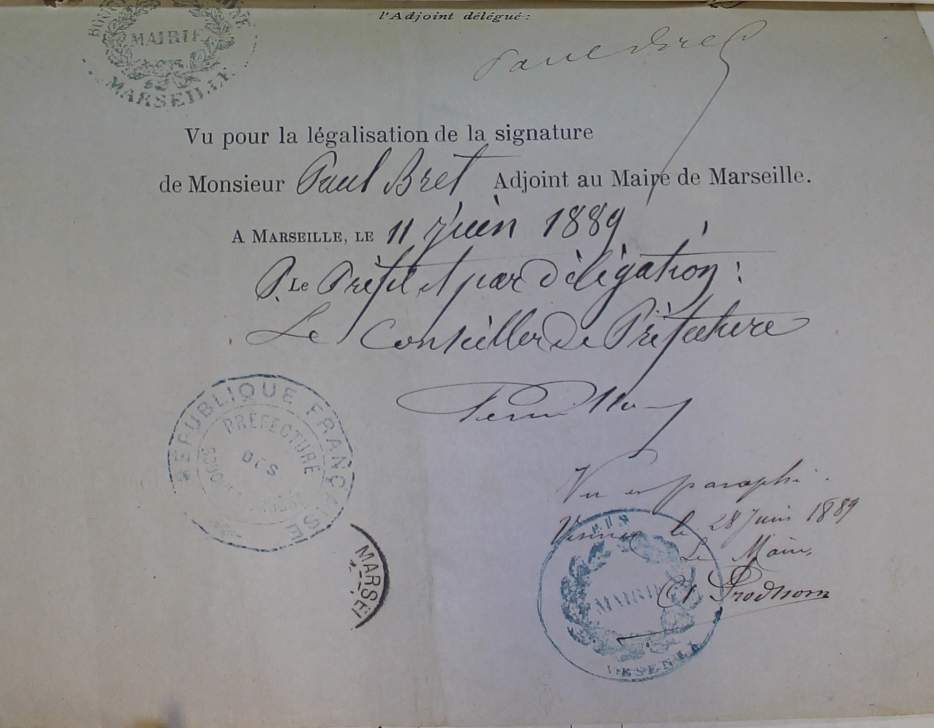 l'Adjoint délégué:
MAIRIE
MARSEILLE
Paul Bret
Vu pour la légalisation de la signature
de Monsieur Paul Bret Adjoint au Maire de Marseille.
A MARSEILLE, LE 11 juin 1889
P. Le Préfet et par délégation:
Le Conseiller de Préfecture
RÉPUBLIQUE FRANÇAISE
PRÉFECTURE
DES
Vu et paraphé.
le 28 Juin 1889
Le Maire,
Prodhom
MAIRIE
MARSEI